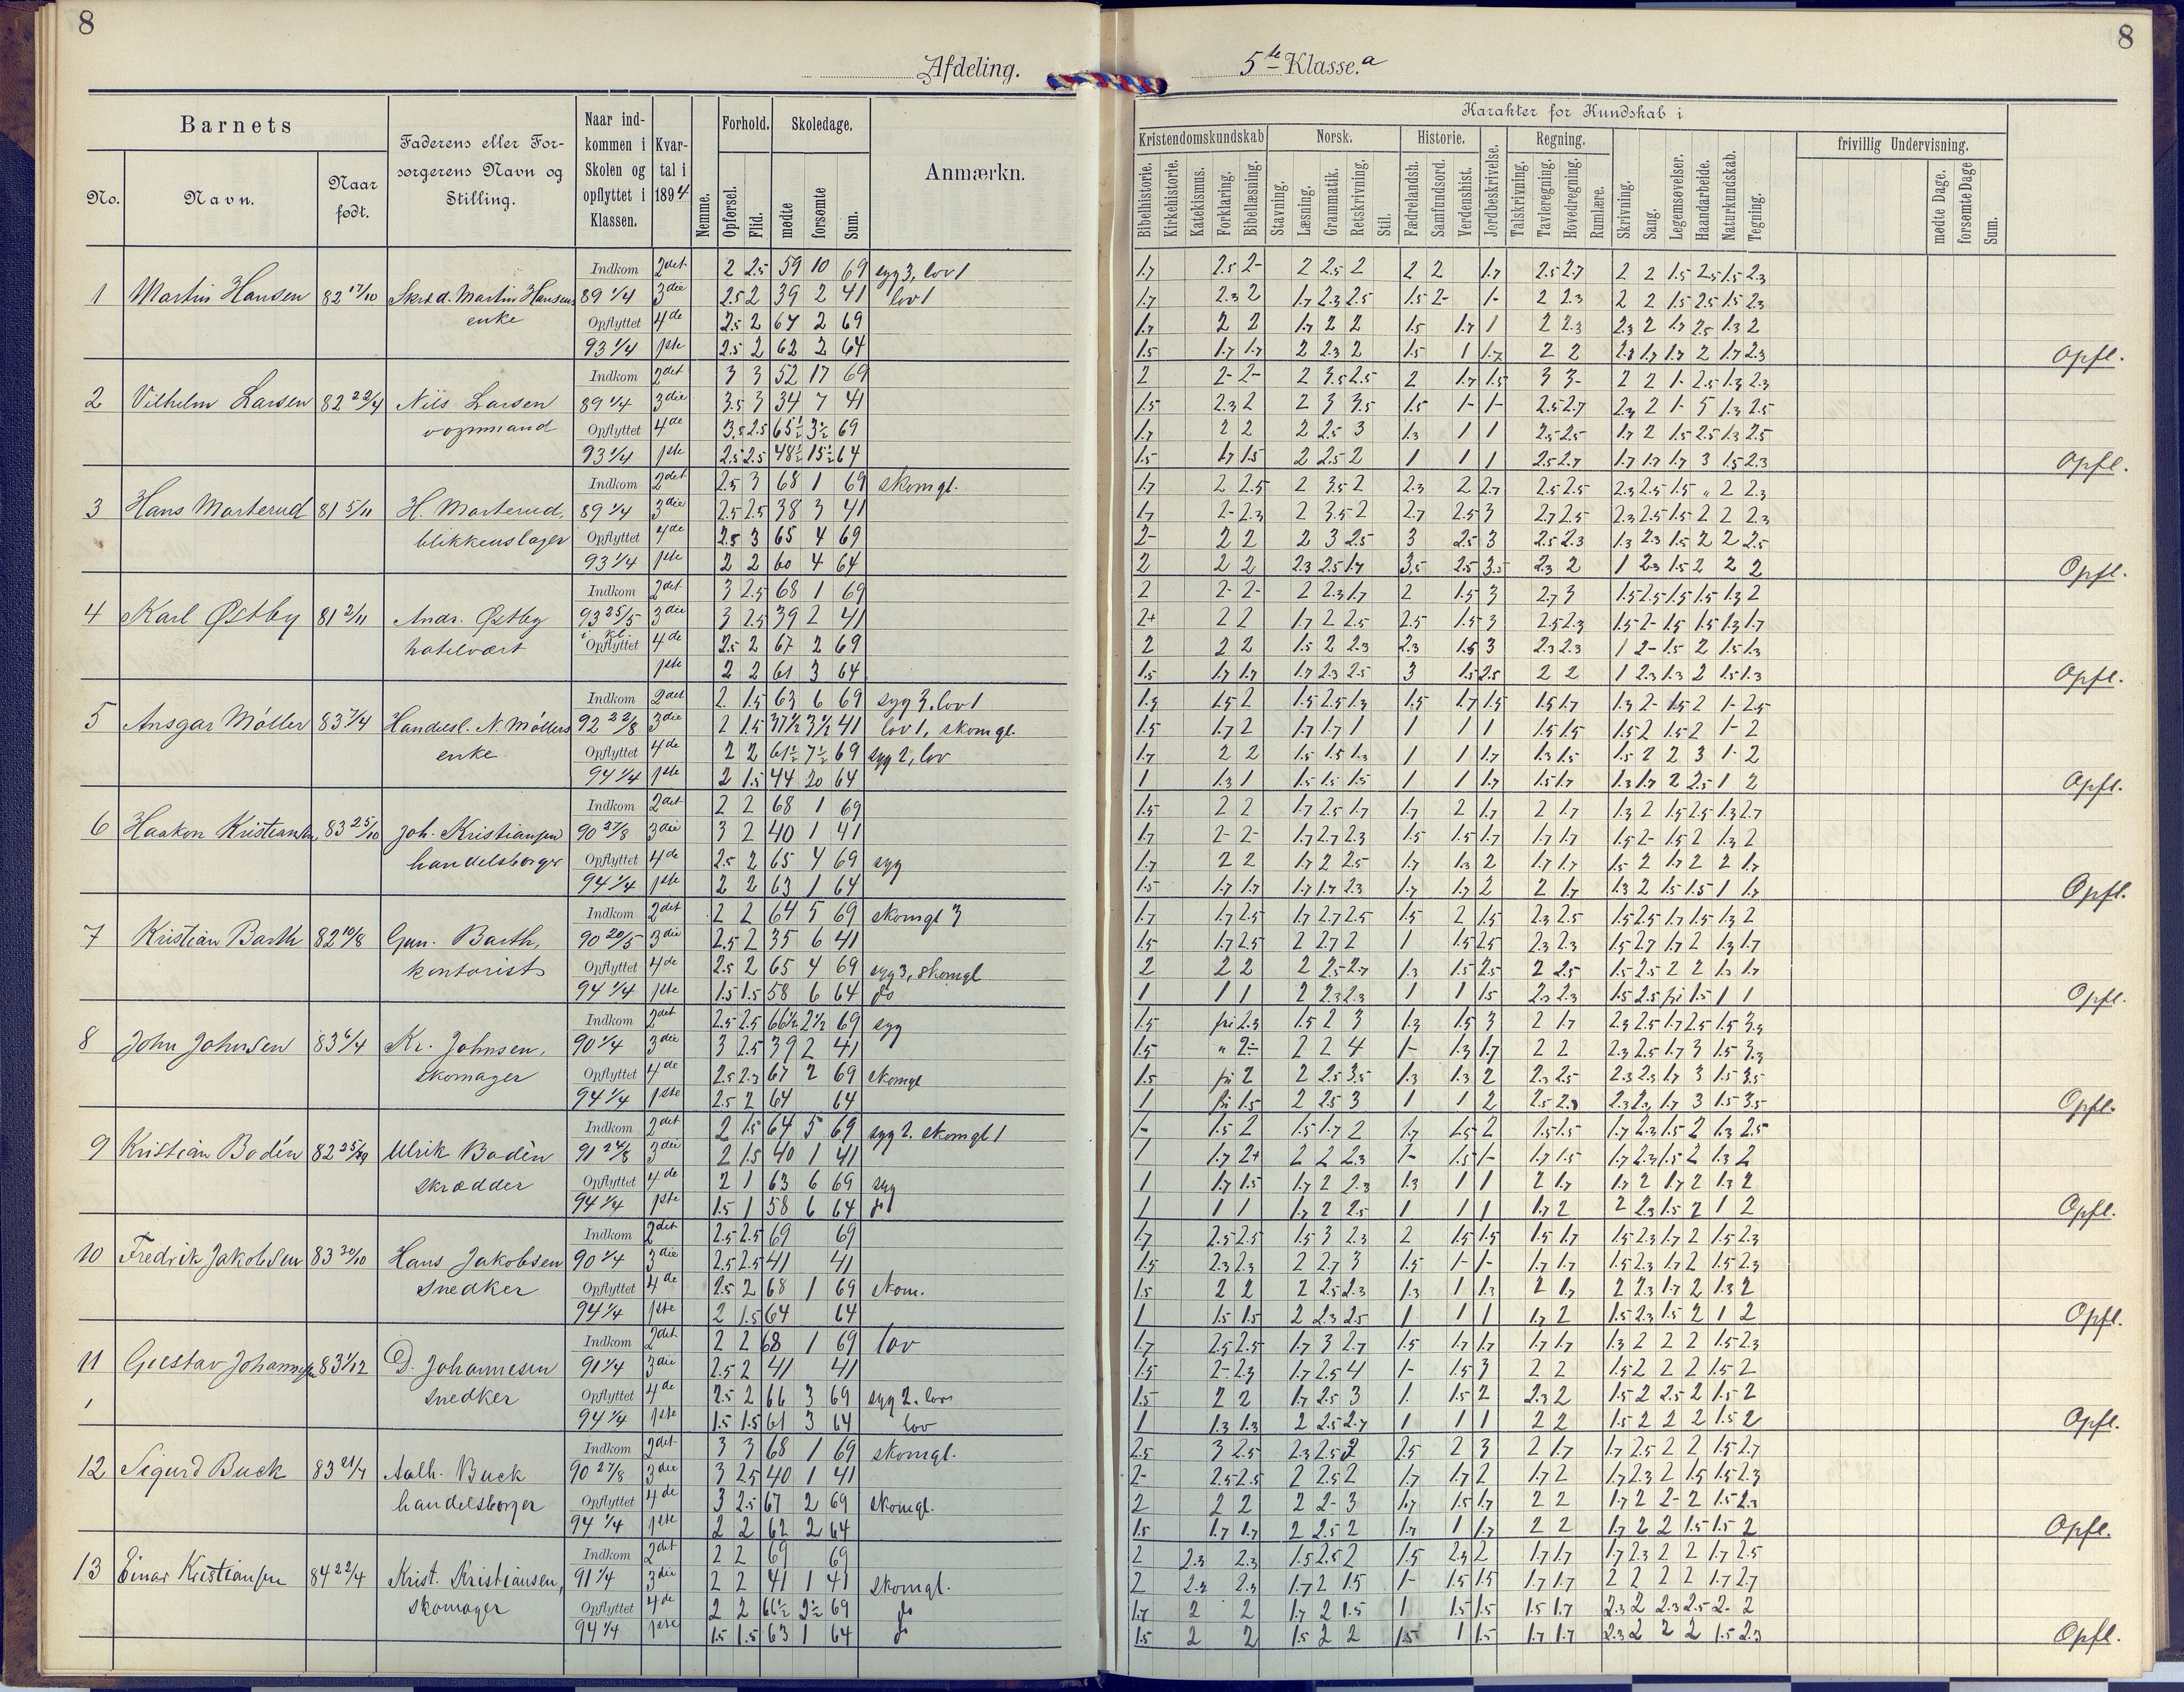 8
Afdeling.
Barnets
No.
Navn.
Naar født.
Faderens eller Forsørgerens Navn og Stilling.
Naar indkommen i Skolen og opflyttet i Klassen.
Kvartal i 1894
Nemme.
Forhold.
Opførsel.
Flid.
Skoledage.
mødte
forsømte
Sum.
Anmærkn.
Indkom 2det 2 2.5 59 10 69 syg 3, lov 1
1 Martin Hansen 82 17/10 Skræd. Martin Hansens 89 1/4 3die 2.5 2 39 2 41 lov 1
enke Opflyttet 4de 2.5 2 67 2 69
93 1/4 1ste 2.5 2 62 2 64
Indkom 2det 3 3 52 17 69
2 Vilhelm Larsen 82 22/4 Nils Larsen 89 1/4 3die 3.5 3 34 7 41
vognmand Opflyttet 4de 3.5 2.5 65½ 3½ 69
93 1/4 1ste 2.5 2.5 48½ 15½ 64
Indkom 2det 2.5 3 68 1 69 skomgl.
3 Hans Marterud 81 5/11 H. Marterud, 89 1/4 3die 2.5 2.5 38 3 41
blikkenslager Opflyttet 4de 2.5 3 65 4 69
93 1/4 1ste 2 2 60 4 64
Indkom 2det 3 2.5 68 1 69
4 Karl Østby 81 2/11 Andr. Østby 93 25/5 3die 3 2.5 39 2 41
hotelvært i kl. Opflyttet 4de 2.5 2 67 2 69
1ste 2 2 61 3 64
Indkom 2det 2 1.5 63 6 69 syg 3, lov 1
5 Ansgar Möller 83 7/4 Handelsl. N. Möllers 92 22/8 3die 2 1.5 37½ 3½ 41 lov 1, skomgl.
enke Opflyttet 4de 2 2 61½ 7½ 69 syg 2, lov
94 1/4 1ste 2 1.5 44 20 64
Indkom 2det 2 2 68 1 69
6 Haakon Kristiansen 83 25/10 Joh. Kristiansen 90 27/8 3die 3 2 40 1 41
handelsborger Opflyttet 4de 2.5 2 65 4 69 syg
94 1/4 1ste 2 2 63 1 64
Indkom 2det 2 2 64 5 69 skomgl 3
7 Kristian Barth 82 10/8 Gun. Barth, 90 20/5 3die 2.5 2 35 6 41
kontorist Opflyttet 4de 2.5 2 65 4 69 syg 3, skomgl
94 1/4 1ste 1.5 1.5 58 6 64 do
Indkom 2det 2.5 2.5 66½ 2½ 69 syg
8 John Johnsen 83 6/4 Kr. Johnsen, 90 1/4 3die 3 2.5 39 2 41
skomager Opflyttet 4de 2.5 2.3 67 2 69 skomgl
94 1/4 1ste 2.5 2 64 64
Indkom 2det 2 1.5 64 5 69 syg 2. skomgl 1
9 Kristian Bodén Ulrik Bodèn 91 24/8 3die 2 1.5 40 1 41
skrædder Opflyttet 4de 2 1 63 6 69 syg
94 1/4 1ste 1.5 1 58 6 64 do
Indkom 2det 2.5 2.5 69 69
10 Fredrik Jakobsen 83 30/10 Hans Jakobsen 90 1/4 3die 2.5 2.5 41 41
snedker Opflyttet 4de 2.5 2 68 1 69 skom.
94 1/4 1ste 2 1.5 64 64
Indkom 2det 2 2 68 1 69 lov
11 Gustav Johannesen 83 1/12 D. Johannesen 91 1/4 3die 2.5 2 41 41
snedker Opflyttet 4de 2.5 2 66 3 69 syg 2. lov
94 1/4 1ste 1.5 1.5 61 3 64 lov
Indkom 2det 3 3 68 1 69 skomgl.
12 Sigurd Buck 83 21/7 Aalb. Buck 90 27/8 3die 3 2.5 40 1 41
handelsborger Opflyttet 4de 3 2.5 67 2 69 skomgl.
94 1/4 1ste 2 2 62 2 64
Indkom 2det 2 2 69 69
13 Einar Kristiansen 84 22/4 Krist. Kristiansen, 91 1/4 3die 2 2 41 1 41 skomgl.
skomager Opflyttet 4de 2 2 66½ 2½ 69 do
94 1/4 1ste 1.5 1.5 63 1 64 do
8
5te Klasse. a
Karakter for Kundskab i
Kristendomskundskab
Bibelhistorie.
Kirkehistorie.
Katekismus.
Forklaring.
Bibellæsning.
Norsk.
Stavning.
Læsning.
Grammatik.
Retskrivning.
Stil.
Historie.
Fædrelandsh.
Samfundsord.
Verdenshist.
Jordbeskrivelse.
Regning.
Talskrivning.
Tavleregning.
Hovedregning.
Rumlære.
Skrivning.
Sang.
Legemsøvelser.
Haandarbeide.
Naturkundskab.
Tegning.
frivillig Undervisning.
mødte Dage.
forsømte Dage
Sum.
1.7 2.5 2- 2 2.5 2 2 2 1.7 2.5 2.7 2 2 1.5 2.5 1.5 2.3
1.7 2.3 2 1.7 2.3 2.5 1.5 2- 1- 2 2.3 2 2 1.5 2.5 1.5 2.3
1.7 2 2 1.7 2 2 1.5 1.7 1 2 2.3 2.3 2 1.7 2.5 1.3 2
1.5 1.7 1.7 2 2.3 2 1.5 1 1.7 2 2 2.3 1.7 1.7 2 1.7 2.3 Opfl.
2 2- 2- 2 3.5 2.5 2 1.7 1.5 3 3- 2 2 1- 2.5 1.3 2.3
1.5 2.3 2 2 3 3.5 1.5 1- 1- 2.5 2.7 2.3 2 1- 5 1.3 2.5
1.7 2 2 2 2.5 3 1.3 1 1 2.5 2.5 1.7 2 1.5 2.5 1.3 2.5
1.5 1.7 1.5 2 2.5 2 1 1 1 2.5 2.7 1.7 1.7 1.7 3 1.5 2.3 Opfl.
1.7 2 2.5 2 3.5 2 2.3 2 2.7 2.5 2.5 2.3 2.5 1.5 „ 2 2.3
1.7 2- 2.3 2 3.5 2 2.7 2.5 3 2.7 2.5 2.3 2.5 1.5 2 2 2.3
2- 2 2 2 3 2.5 3 2.5 3 2.5 2.3 1.3 2.3 1.5 2 2 2.5
2 2 2 2.3 2.5 1.7 3.5 2.5 3.5 2.3 2 1 2.3 1.5 2 2 2 Opfl.
2 2- 2- 2 2.3 1.7 2 1.5 3 2.7 3 1.5 2.5 1.5 1.5 1.3 2
2+ 2 2 1.7 2 2.5 2.5 1.5 3 2.5 2.3 1.5 2- 1.5 1.5 1.3 1.7
2 2 2 1.5 2 2.3 2.3 1.5 3 2.3 2.3 1 2- 1.5 2 1.5 1.3
1.5 1.7 1.7 1.7 2.3 2.5 3 1.5 2.5 2 2 1 2.3 1.3 2 1.5 1.3 Opfl.
1.5 1.5 2 1.5 2.5 1.3 1.5 1.7 1.5 1.5 1.7 1.3 2- 1.5 2 1- 2.5
1.5 1.7 2 1.7 1.7 1 1 1 1 1.5 1.5 1.5 2 1.5 2 1- 2
1.7 2 2 1.5 1.5 1.3 1 1 1.7 1.3 1.5 1.5 2 2 3 1- 2
1 1.3 1 1.5 1.5 1.5 1 1 1.7 1.5 1.7 1.3 1.7 2 2.5 1 2 Opfl.
1.5 2 2 1.7 2.5 1.7 1.7 2 1.7 2 1.7 1.3 2 1.5 2.5 1.3 2.7
1.7 2- 2- 1.7 2.7 2.3 1.5 1.5 1.7 1.7 1.7 1.5 2- 1.5 2 1.3 2
1.7 2 2 1.7 2 2.5 1.7 1.3 2 1.7 1.7 1.5 2 1.7 2 2 1.7
1.5 1.7 1.7 1.7 1.7 2.3 1.7 1.7 2 2 1.7 1.3 2 1.5 1.5 1 1.7 Opfl.
1.7 1.7 2.5 1.7 2.7 2.5 1.5 2 1.5 2.3 2.5 1.5 2.5 1.7 1.5 1.3 2
1.5 1.7 2.5 2 2.7 2 1 1.5 2.5 2.3 2.3 1.5 2.7 1.7 2 1.3 1.7
2 2 2 2 2.5 2.7 1.3 1.5 2.5 2 2.5 1.5 2.5 2 2 1.3 1.7
1 1 1 2 2.3 2.3 1 1 1.5 2.3 2.3 1.5 2.5 fri 1.5 1 1 Opfl.
1.5 fri 2.3 1.5 2 3 1.3 1.5 3 2 1.7 2.3 2.5 1.7 2.5 1.5 3.3
1.5 „ 2- 2 2 4 1- 1.3 1.7 2 2 2.3 2.5 1.7 3 1.5 3.3
1.5 fri 2 2 2.5 3.5 1.3 1.3 2 2.3 2.5 2.3 2.3 1.7 3 1.5 3.5
1 fri 1.5 2 2.5 3 1 1 2 2.5 2.3 2.3 2.3 1.7 3 1.5 3.5 Opfl.
1- 1.5 2 1.5 1.7 2 1.7 1.5 2 1.5 1.5 1.7 2.3 1.5 2 1.3 2.5
1 1.7 2+ 2 2 2.3 1- 1.5 1- 1.7 1.5 1.7 2.3 1.5 2 1.3 2
1 1.7 1.5 1.7 2 2.3 1.3 1 1 2 1.7 1.7 2 1.7 2 1.3 2
1 1 1 1.7 2 2.5 1 1 1 1.7 2 2 2.3 1.5 2 1 2 Opfl.
1.7 2.5 2.5 1.5 3 2.3 2 1.5 1.5 1.5 1.7 1.5 2.3 1.7 2 1.5 2.3
1.5 2.3 2.3 2 2.7 3 1.5 1- 1- 1.7 1.7 1.5 2.3 1.7 2 1.5 2.3
1.5 2 2 2 2.5 2.3 1.3 1 1.3 2 1.7 2 2.3 1.7 2 1.3 2
1 1.5 1.5 2 2.3 2.5 1 1 1 1.7 2 1.5 2.3 1.5 2 1 2 Opfl.
1.7 2.5 2.5 1.7 3 2.7 1.5 1.7 1.7 1.7 1.7 1.3 2 2 2 1.5 2.3
1.5 2- 2.3 1.7 2.5 4 1- 1.5 3 2 2 1.5 2 2 2 1.5 2
1.5 2 2 1.7 2.5 3 1. 1.5 2 2.3 2 1.5 2 2.5 2 1.5 2
1 1.3 1.3 2 2.5 2.7 1 1 1 2 2 1.5 2 2 2 1.5 2 Opfl.
2.5 3 2.5 2.3 2.5 2 2.5 2 3 2 1.7 1.7 2.5 2 2 1.5 2.7
2- 2.5 2.5 2 2.5 2 1.7 1.7 2 1.7 2 1.7 2.3 2 1.5 1.5 2.3
2 2 2 2 2- 3 1.7 1.5 1.7 2 2 1.7 2 2- 2 1.5 2.3
1.5 1.7 1.7 2 2.5 2 1.7 1 1.7 2 2 1.7 2 2 1.5 1.5 2 Opfl.
2 2.3 2.3 1.5 2.5 2 1.5 2.3 2 1.7 1.7 1.7 2.3 2 2 1.7 2.5
2 2.3 2.3 1.7 2 1.5 1- 1.5 1.5 1.7 1.7 2 2 2 2 1.7 2.7
1.7 2 2 1.7 2 1.5 1 1.5 1.5 1.5 1.7 2.3 2 2.3 2.5 2- 2
1.5 2 2 1.5 2 2 1.5 1 1.5 1.7 1.7 2.3 2 2 2 1.5 2.3 Opfl.